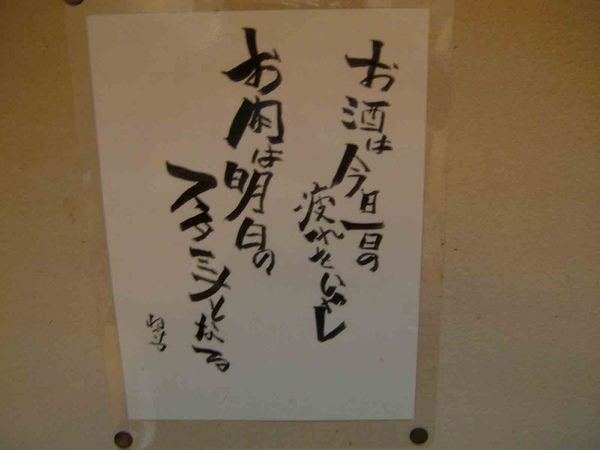 お酒は今日一日の
疲れをいやし
お肉は明日の
スタミナとなる